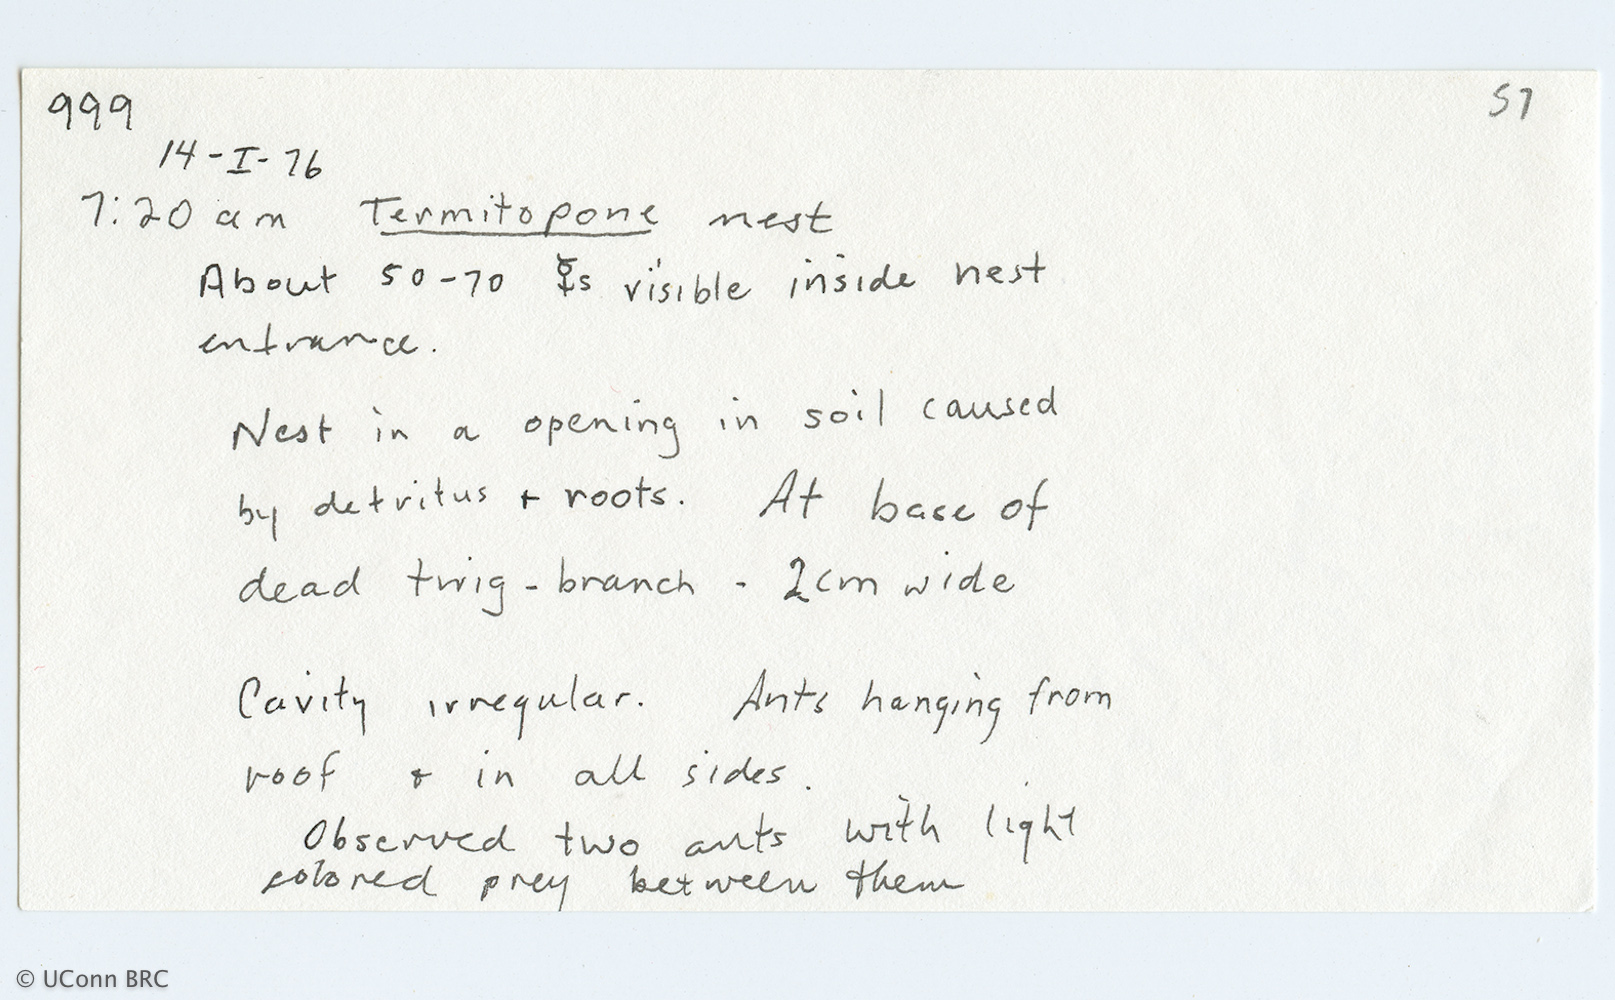 999
57
14-I-76
7:20 am Termitopone nest
About 50-70 ☿s visible inside nest
entrance.
Nest in a opening in soil caused
by detritus + roots. At base of
dead twig-branch - 2cm wide
Cavity irregular. Ants hanging from
roof + in all sides.
Observed two ants with light
colored prey between them
© UConn BRC